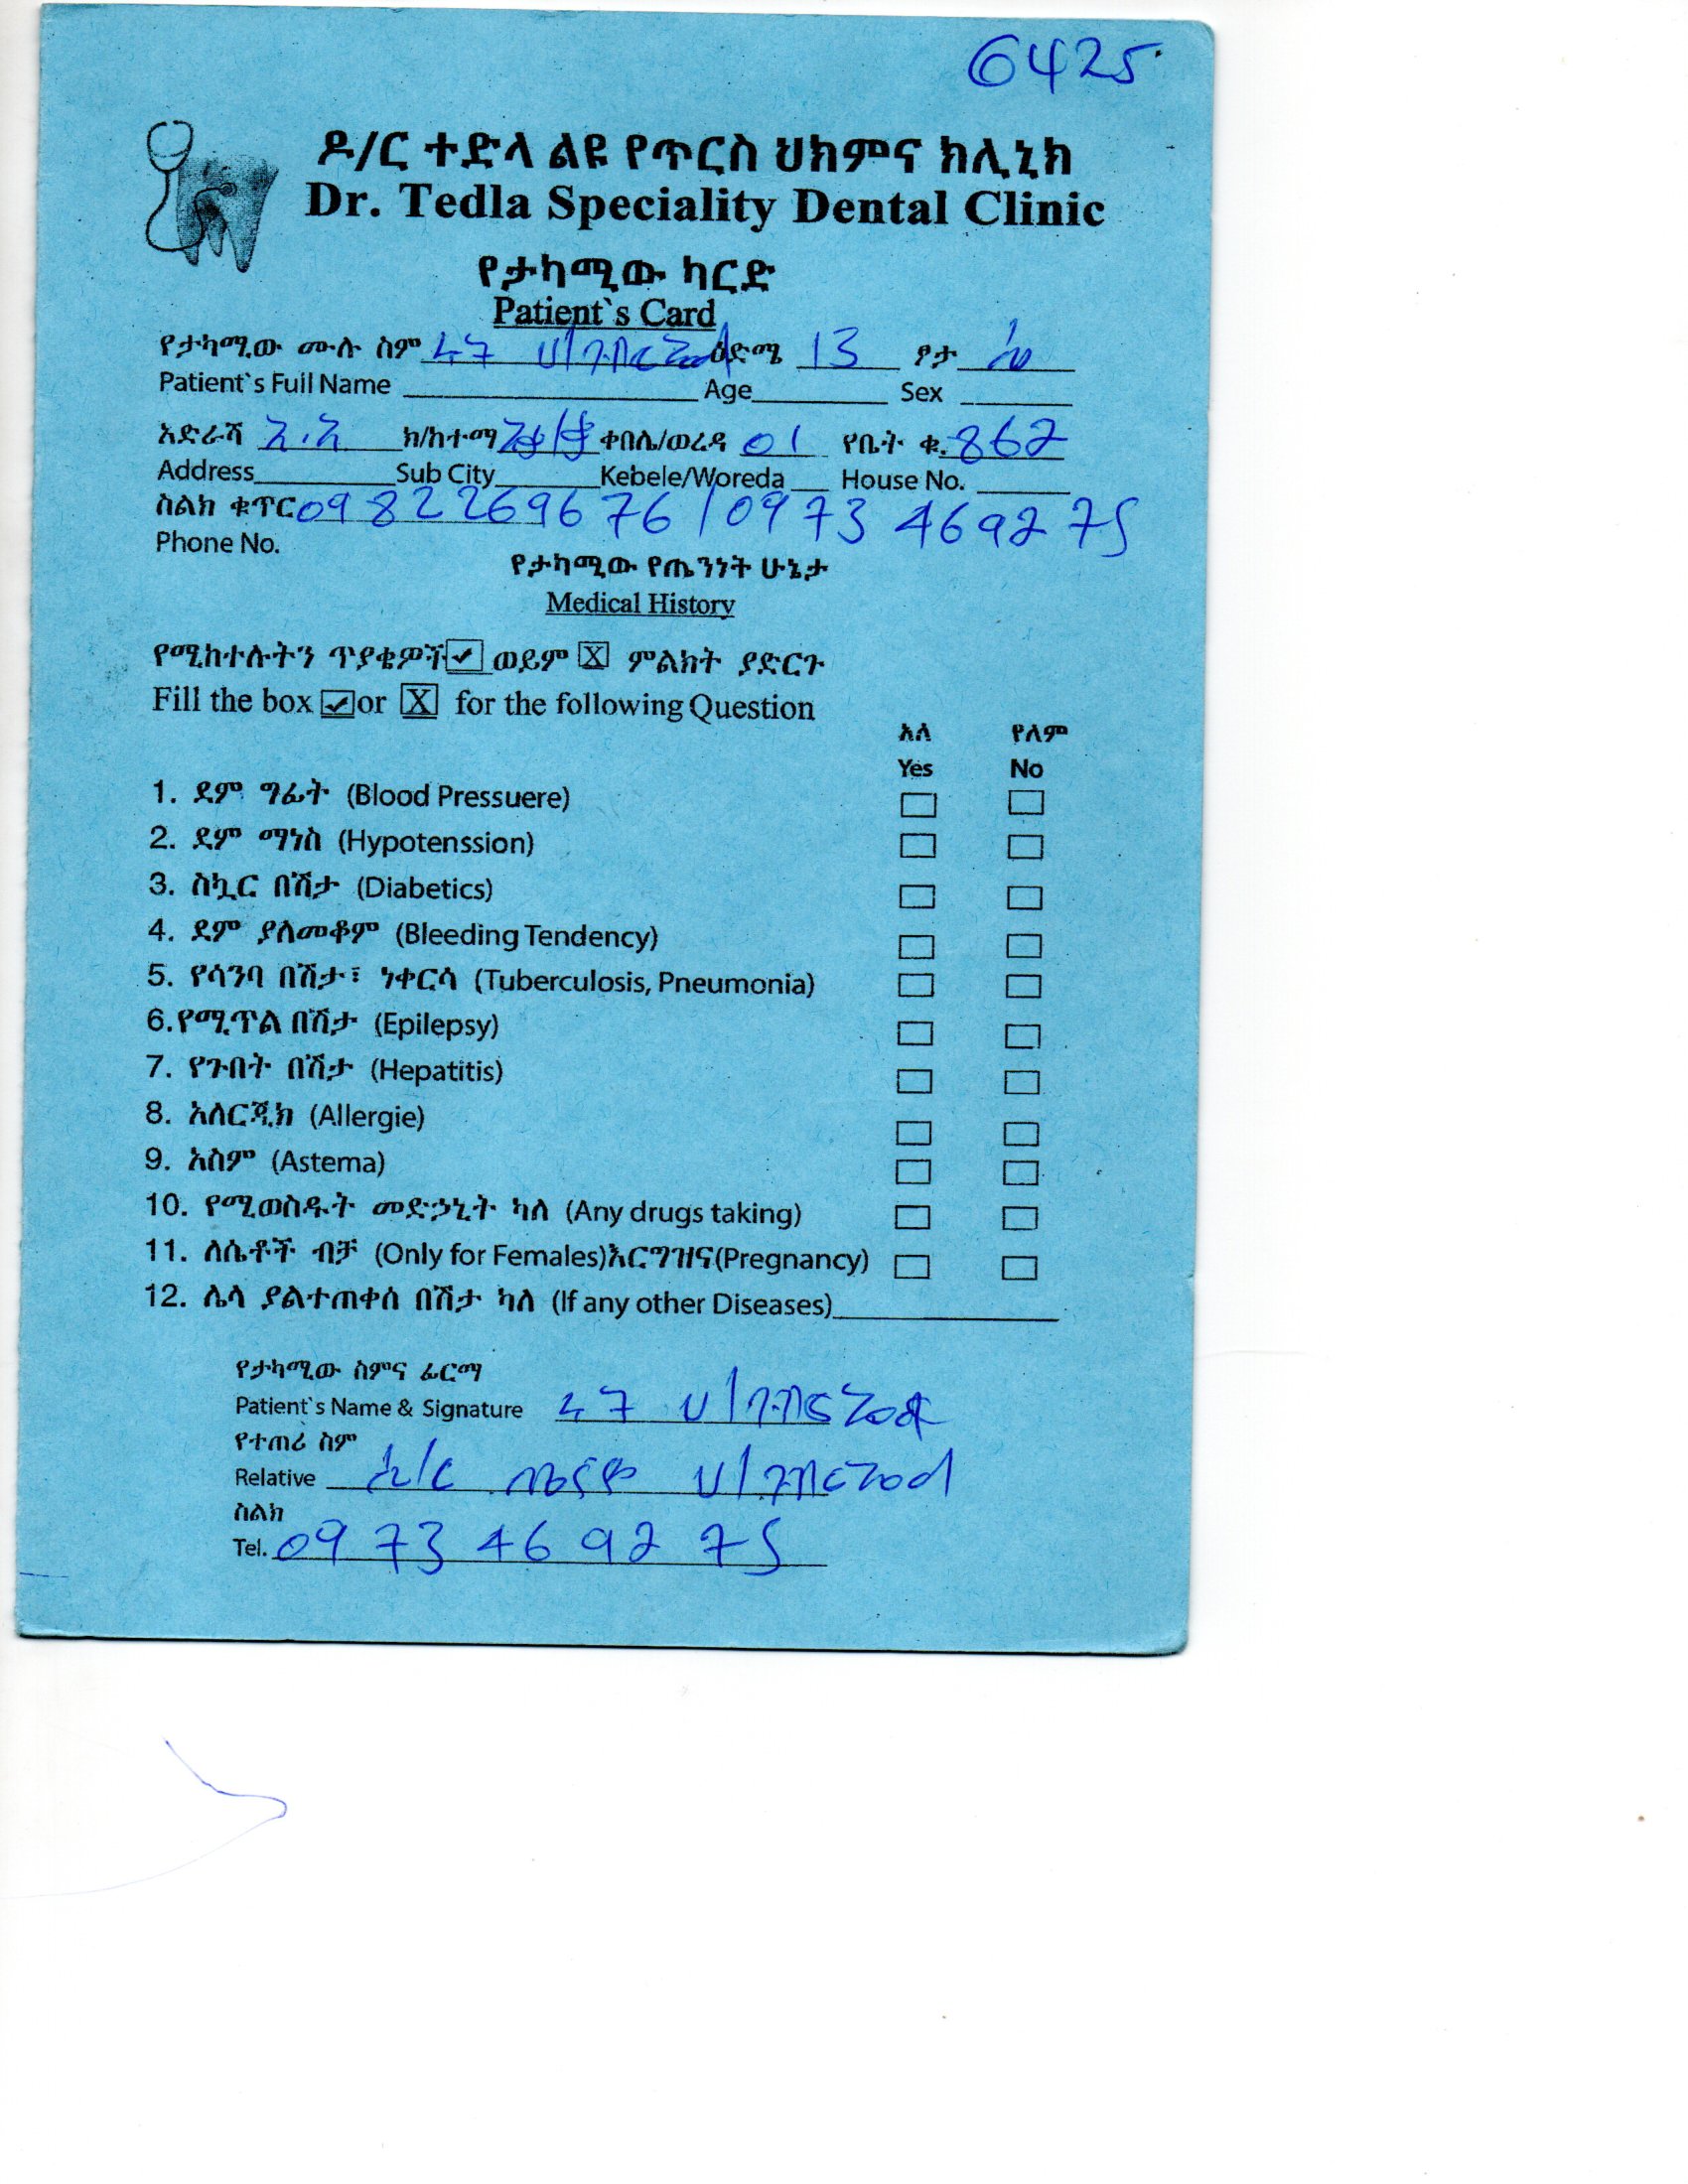 6425
ዶ/ር ተድላ ልዩ የጥርስ ህክምና ክሊኒክ
Dr. Tedla Speciality Dental Clinic
የታካሚው ካርድ
Patient`s Card
የታካሚው ሙሉ ስም ዕድሜ 13 ፆታ
Patient`s Full Name Age Sex
አድራሻ አ.አ ክ/ከተማ ቀበሌ/ወረዳ 01 የቤት ቁ. 862
Address Sub City Kebele/Woreda House No.
ስልክ ቁጥር 0982269676 / 0973 469275
Phone No.
የታካሚው የጤንነት ሁኔታ
Medical History
የሚከተሉትን ጥያቄዎች ✓ ወይም X ምልክት ያድርጉ
Fill the box ✓ or X for the following Question
አለ የለም
Yes No
1. ደም ግፊት (Blood Pressuere)
2. ደም ማነስ (Hypotenssion)
3. ስኳር በሽታ (Diabetics)
4. ደም ያለመቆም (Bleeding Tendency)
5. የሳንባ በሽታ፣ ነቀርሳ (Tuberculosis, Pneumonia)
6.የሚጥል በሽታ (Epilepsy)
7. የጉበት በሽታ (Hepatitis)
8. አለርጂክ (Allergie)
9. አስም (Astema)
10. የሚወስዱት መድኃኒት ካለ (Any drugs taking)
11. ለሴቶች ብቻ (Only for Females)እርግዝና(Pregnancy)
12. ሌላ ያልተጠቀሰ በሽታ ካለ (If any other Diseases)
የታካሚው ስምና ፊርማ
Patient`s Name & Signature
የተጠሪ ስም
Relative
ስልክ
Tel. 0973 46 92 75